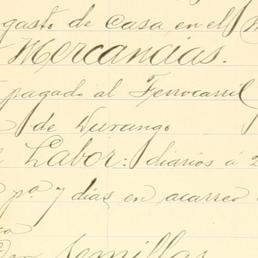 gasto de Casa, en el
Mercancias.
pagado al Ferrocarril
de Durango
Labor: diarios á 2
pª y dias en acarreo
Semillas